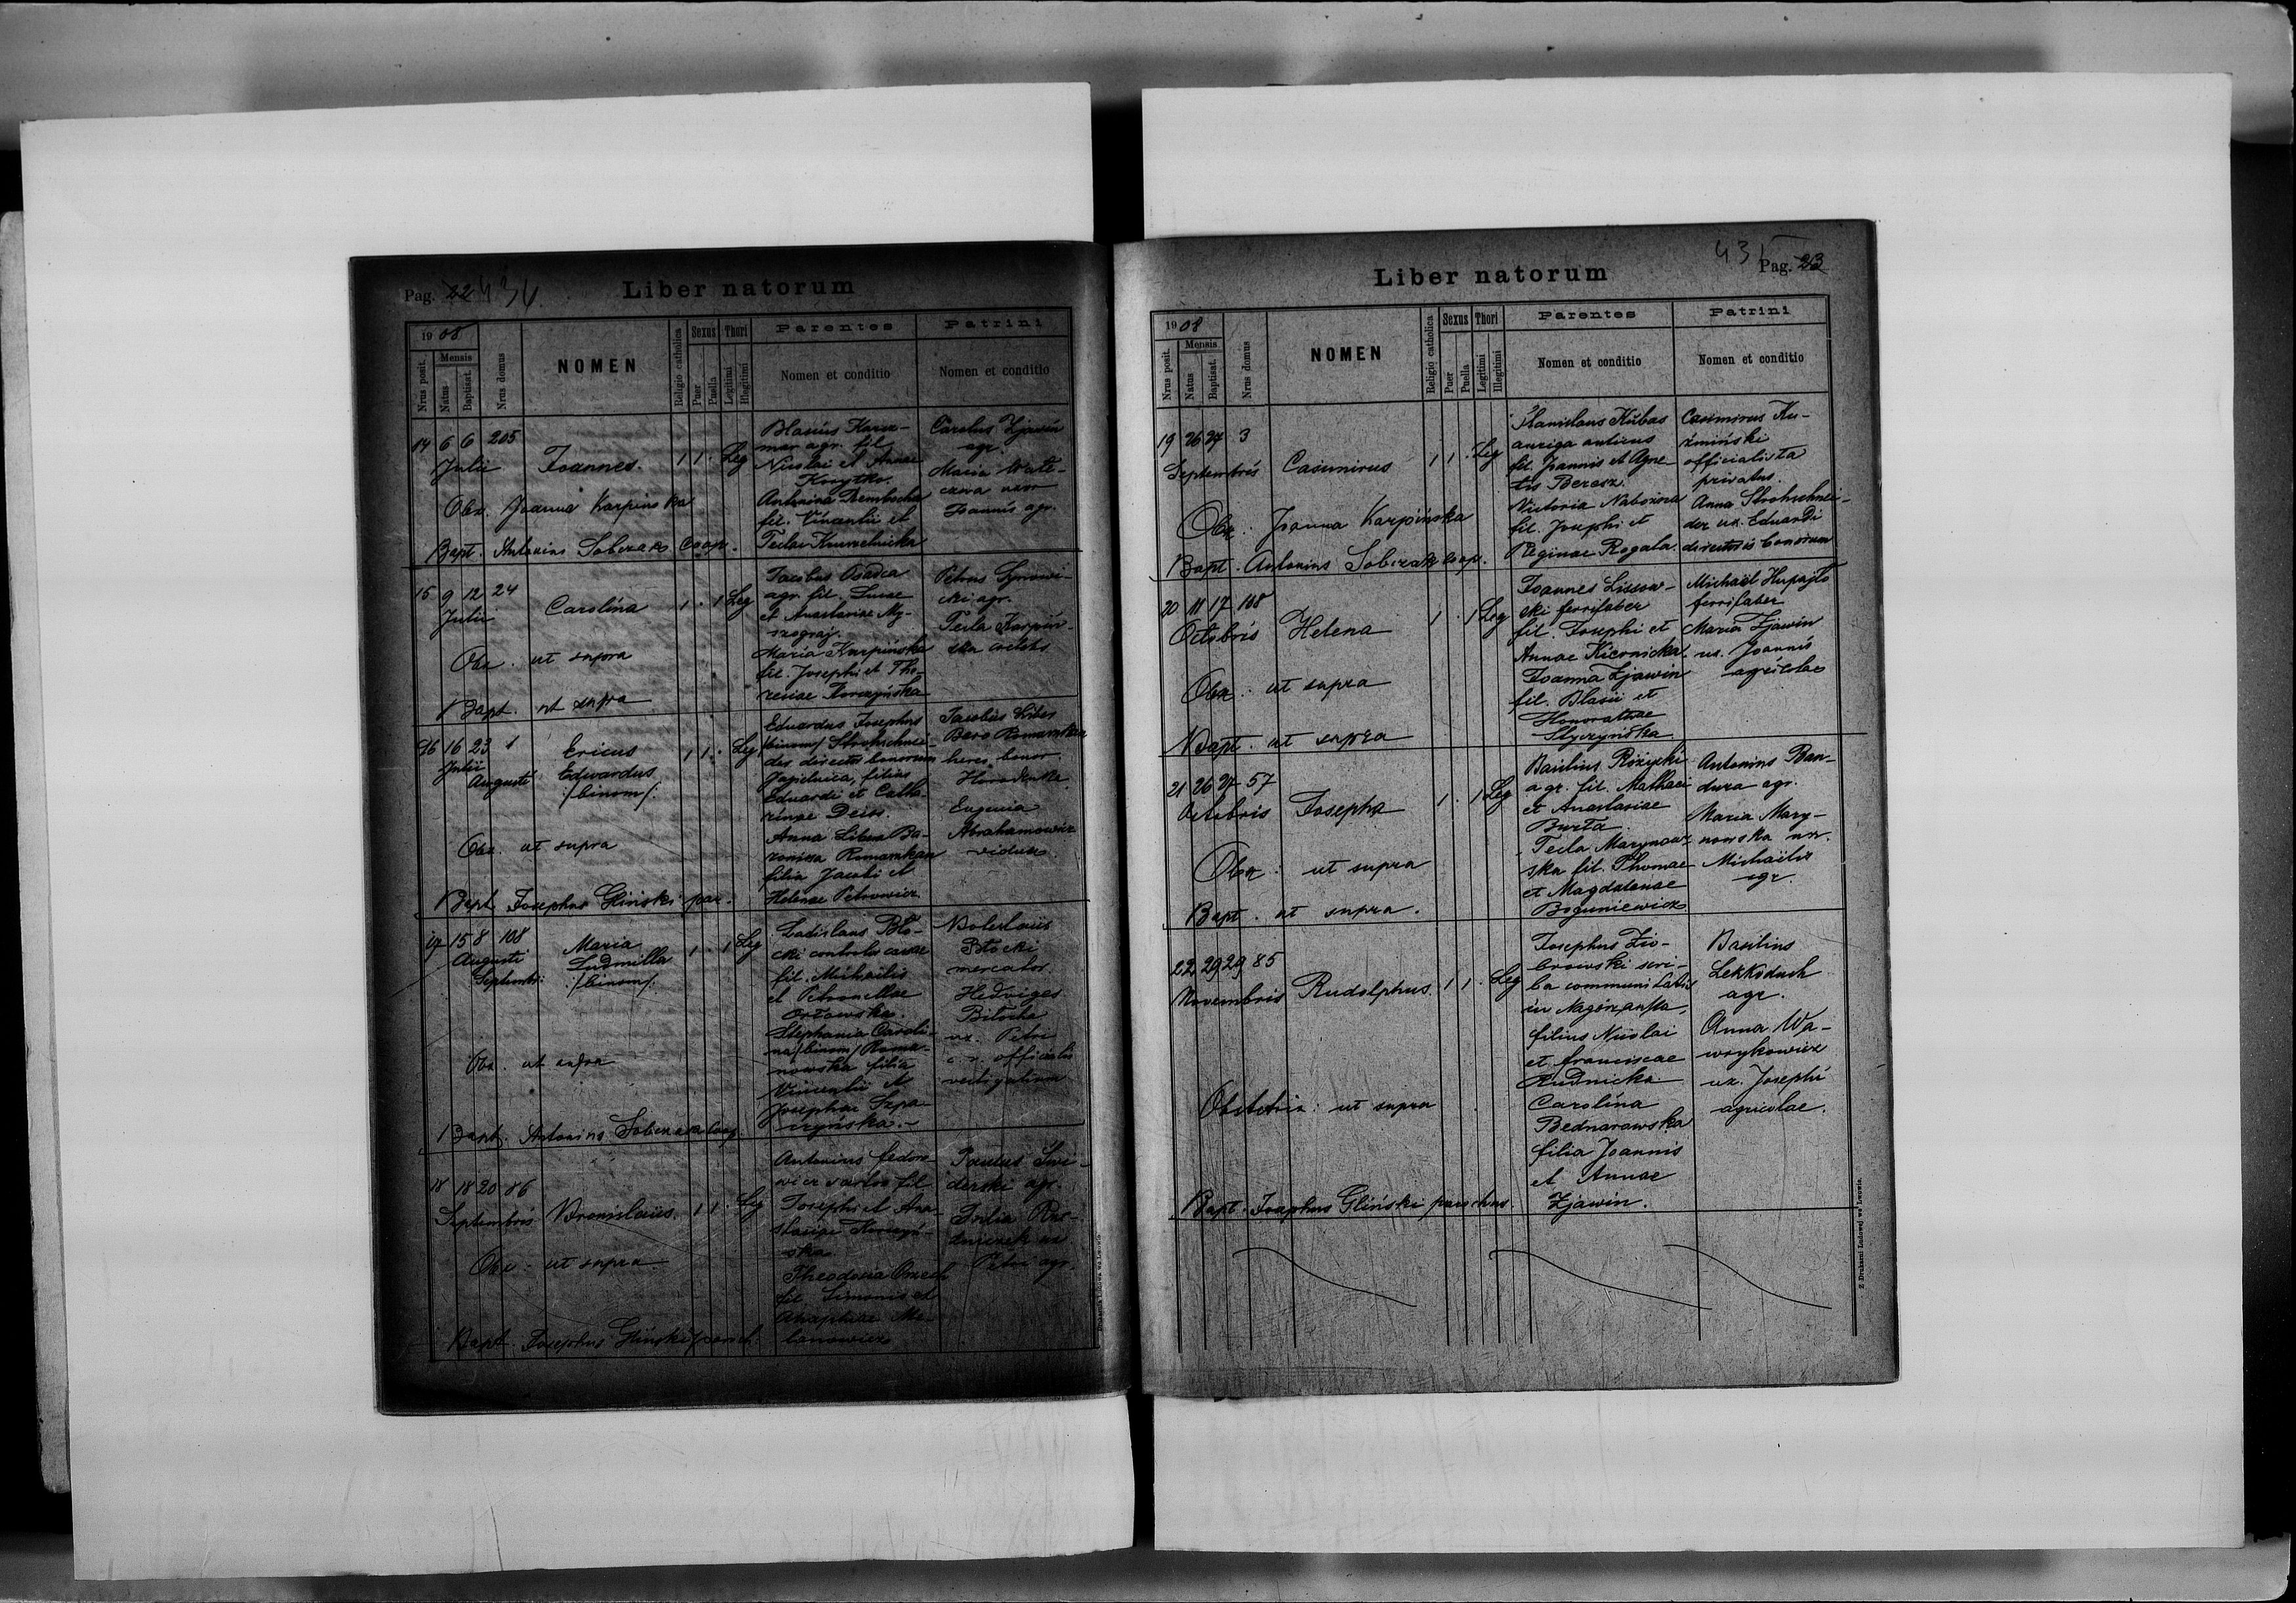 Pag. 22 434
Liber natorum
1908
Nrus posit.
Mensis
Natus
Baptisat.
Nrus domus
NOMEN
Religio catholica
Sexus
Puer
Puella
Thori
Legitimi
Illegitimi
Parentes
Nomen et conditio
Patrini
Nomen et conditio
14 6 6 205
Julii
Joannes.
1 1 . Leg
Blasius
agr. fil.
Nicolai et Annae
Antonina
fil. Vincentii et
Teclae
Carolus Zjawin
agr.
Maria
Joannis agr.
Obx. Joanna Karpinska
Bapt. Antonius Sobczak coop.
15 9 12 24
Julii
Carolina
1 . 1 Leg
Jacobus Osadca
agr. fil. Lucae
et Anastasiae My-
szograj.
Maria Karpińska
fil. Josephi et The-
resiae Korczyńska
Petrus Synowi-
cki agr.
Tecla Karpiń-
ska coelebs
Obx. ut supra
Bapt. ut supra
16 16 23 1
Julii
Augusti
Ericus
Edwardus
/:binom/:
1 1 . Leg
Eduardus Josephus
/binom/ Strohschnei-
der director bonorum
Jagielnica, filius
Eduardi et Catha-
rinae Deiss.
Anna Libera Ba-
ronissa Romaszkan
filia Jacobi et
Helenae Petrowicz
Jacobus Liber
Baro Romaszkan
heres bonor.
Horodenka
Eugenia
Abrahamowicz
vidua
Obx. ut supra
Bapt. Josephus Gliński par.
17 15 8 108
Augusti
Septembr.
Maria
Ludmilla
/:binom/:
1 . 1 Leg
Ladislaus Bło-
cki controlor
fil. Michaelis
et Petronellae
Orłowska.
Stephania Caroli-
na /binom/ Roma-
nowska filia
Vincentii et
Josephae Szpa-
czyńska.-
Boleslaus
Błocki
mercator.
Hedviges
ux. Petri
c. r. officialis
vectigalium
Obx. ut supra
Bapt. Antonius Sobczak Coop.
18 18 20 86
Septembris
Bronislaus.
1 1 . Leg
Antonius Fedoro-
wicz sartor fil.
Josephi et Ana-
stasiae
Theodosia
fil. Simonis et
Agaphiae Me-
lanowicz
Paulus Świ-
derski agr.
Julia
Petri agr.
Obx. ut supra
Bapt. Josephus Gliński paroch.
435 Pag. 23
Liber natorum
1908
Nrus posit.
Mensis
Natus
Baptisat.
Nrus domus
NOMEN
Religio catholica
Sexus
Puer
Puella
Thori
Legitimi
Illegitimi
Parentes
Nomen et conditio
Patrini
Nomen et conditio
19 26 27 3
Septembris
Casimirus
1 1 . Leg
Stanislaus Kubas
auriga
fil. Joannis et Agne-
tis Beresz.
Victoria
fil. Josephi et
Reginae Rogala.
Casimirus Ku-
źmiński
officialista
privatus.
Anna Strohschnei-
der ux. Eduardi
directoris bonorum
Obx: Joanna Karpińska
Bapt. Antonius Sobczak coop.
20 11 17 108
Octobris
Helena
1 . 1 Leg
Joannes Lissow-
ski ferrifaber
fil. Josephi et
Annae Kiernicka.
Joanna Zjawin
fil. Blasii et
Honorathae
Styczyńska
Michaël Hupajło
ferrifaber
Maria Zjawin
ux. Joannis
agricolae
Obx: ut supra
Bapt. ut supra
21 26 27 57
Octobris
Josepha
1 . 1 Leg
Basilius Różycki
agr. fil. Mathaei
et Anastasiae
Burta.
Tecla Marynow-
ska fil. Thomae
et Magdalenae
Boguniewicz
Antonius Ban-
dura agr.
Maria Mary-
nowska uxr.
Michaëlis
agr.
Obx: ut supra
Bapt. ut supra.
22 29 29 85
Novembris
Rudolphus.
1 1 . Leg
Josephus Zio-
browski scri-
ba communitatis
in Nagórzanka,
filius Nicolai
et Franciscae
Rudnicka
Carolina
Bednarowska
filia Joannis
et Annae
Zjawin.
Basilius
Lekkoduch
agr.
Anna Wa-
wrykowicz
ux. Josephi
agricolae.
Obstetrix: ut supra
Bapt. Josephus Gliński parochus.
Z Drukarni Ludowej we Lwowie.